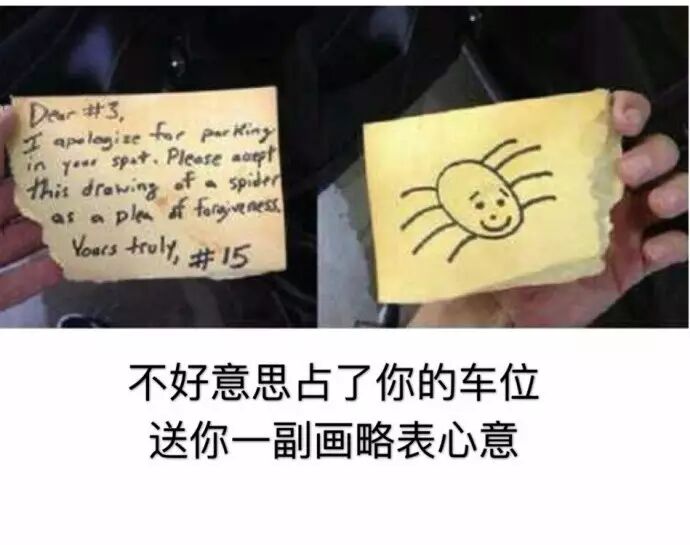 Dear #3,
I apologize for parking
in your spot. Please accept
this drawing of a spider
as a plea of forgiveness.
Yours truly, #15
不好意思占了你的车位
送你一副画略表心意